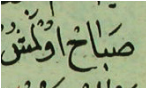 صباح اولمش